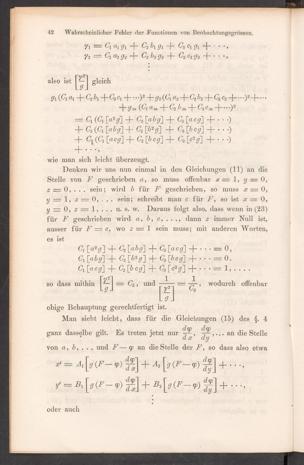 42 Wahrscheinlicher Fehler der Functionen von Beobachtungsgrössen.
γ₁ = C₁ a₁ g₁ + C₂ b₁ g₁ + C₃ c₁ g₁ + ···,
γ₂ = C₁ a₂ g₂ + C₂ b₂ g₂ + C₃ c₂ g₂ + ···,
⋮
also ist [γ²/g] gleich
g₁(C₁ a₁ + C₂ b₁ + C₃ c₁ + ···)² + g₂(C₁ a₂ + C₂ b₂ + C₃ c₂ + ···)² + ···
+ gₘ(C₁ aₘ + C₂ bₘ + C₃ cₘ + ···)²
= C₁ (C₁ [a²g] + C₂ [abg] + C₃ [acg] + ···)
+ C₂ (C₁ [abg] + C₂ [b²g] + C₃ [bcg] + ···)
+ C₃ (C₁ [acg] + C₂ [bcg] + C₃ [c²g] + ···)
+ ···,
wie man sich leicht überzeugt.
Denken wir uns nun einmal in den Gleichungen (11) an die
Stelle von F geschrieben a, so muss offenbar x = 1, y = 0,
z = 0, . . . sein; wird b für F geschrieben, so muss x = 0,
y = 1, z = 0, . . . sein; schreibt man c für F, so ist x = 0,
y = 0, z = 1, . . . u. s. w. Daraus folgt also, dass wenn in (23)
für F geschrieben wird a, b, c, . . ., dann z immer Null ist,
ausser für F = c, wo z = 1 sein muss; mit anderen Worten,
es ist
C₁ [a²g] + C₂ [abg] + C₃ [acg] + ··· = 0,
C₁ [abg] + C₂ [b²g] + C₃ [bcg] + ··· = 0.
C₁ [acg] + C₂ [bcg] + C₃ [c²g] + ··· = 1, . . . .
so dass mithin [γ²/g] = C₃, und 1/[γ²/g] = 1/C₃, wodurch offenbar
obige Behauptung gerechtfertigt ist.
Man sieht leicht, dass für die Gleichungen (15) des §. 4
ganz dasselbe gilt. Es treten jetzt nur dφ/dx, dφ/dy, ... an die Stelle
von a, b, . . . und F − φ an die Stelle der F, so dass also etwa
x' = A₁ [g (F − φ) dφ/dx] + A₂ [g (F − φ) dφ/dy] + ···,
y' = B₁ [g (F − φ) dφ/dx] + B₂ [g (F − φ) dφ/dy] + ···,
⋮
oder auch